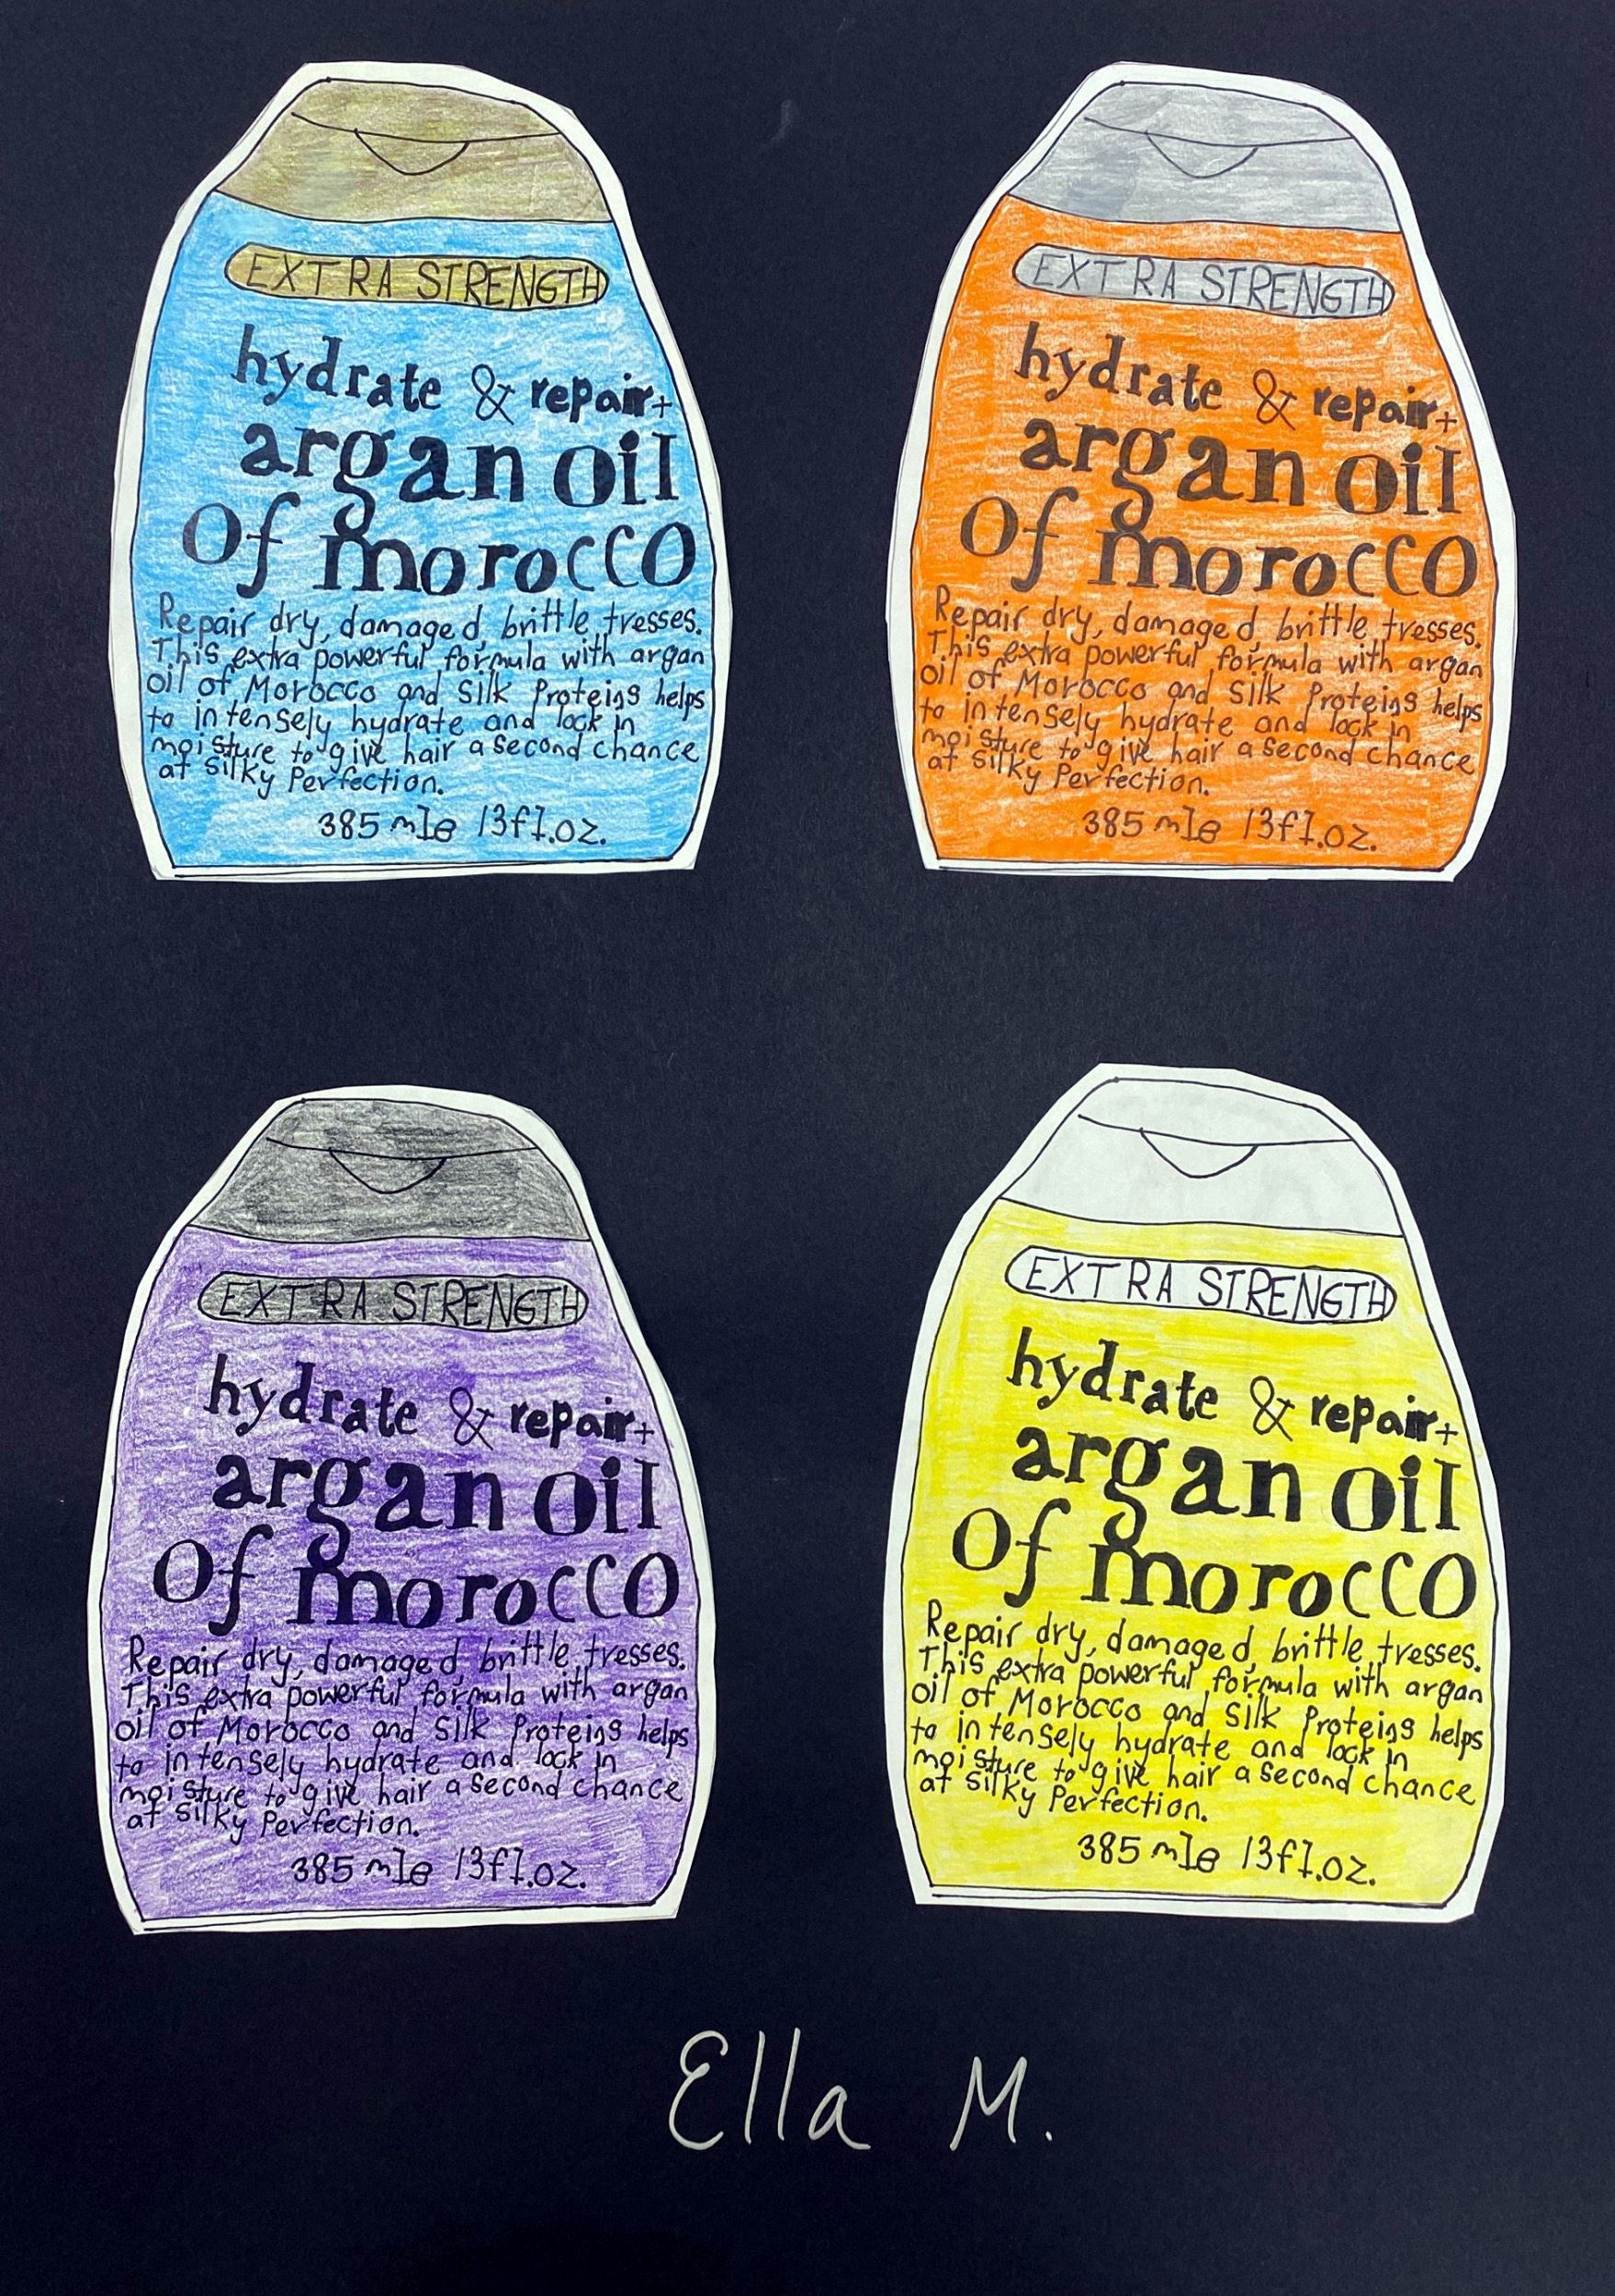 EXTRA STRENGTH
hydrate & repair+
argan oil
of morocco
Repair dry, damaged, brittle tresses.
This extra powerful formula with argan
oil of Morocco and Silk Proteins helps
to intensely hydrate and lock in
moisture to give hair a second chance
at Silky Perfection.
385 mle 13fl.oz.
EXTRA STRENGTH
hydrate & repair+
argan oil
of morocco
Repair dry, damaged, brittle tresses.
This extra powerful formula with argan
oil of Morocco and Silk Proteins helps
to intensely hydrate and lock in
moisture to give hair a second chance
at Silky Perfection.
385 mle 13fl.oz.
EXTRA STRENGTH
hydrate & repair+
argan oil
of morocco
Repair dry, damaged, brittle tresses.
This extra powerful formula with argan
oil of Morocco and Silk Proteins helps
to intensely hydrate and lock in
moisture to give hair a second chance
at Silky Perfection.
385 mle 13fl.oz.
EXTRA STRENGTH
hydrate & repair+
argan oil
of morocco
Repair dry, damaged, brittle tresses.
This extra powerful formula with argan
oil of Morocco and Silk Proteins helps
to intensely hydrate and lock in
moisture to give hair a second chance
at Silky Perfection.
385 mle 13fl.oz.
Ella M.